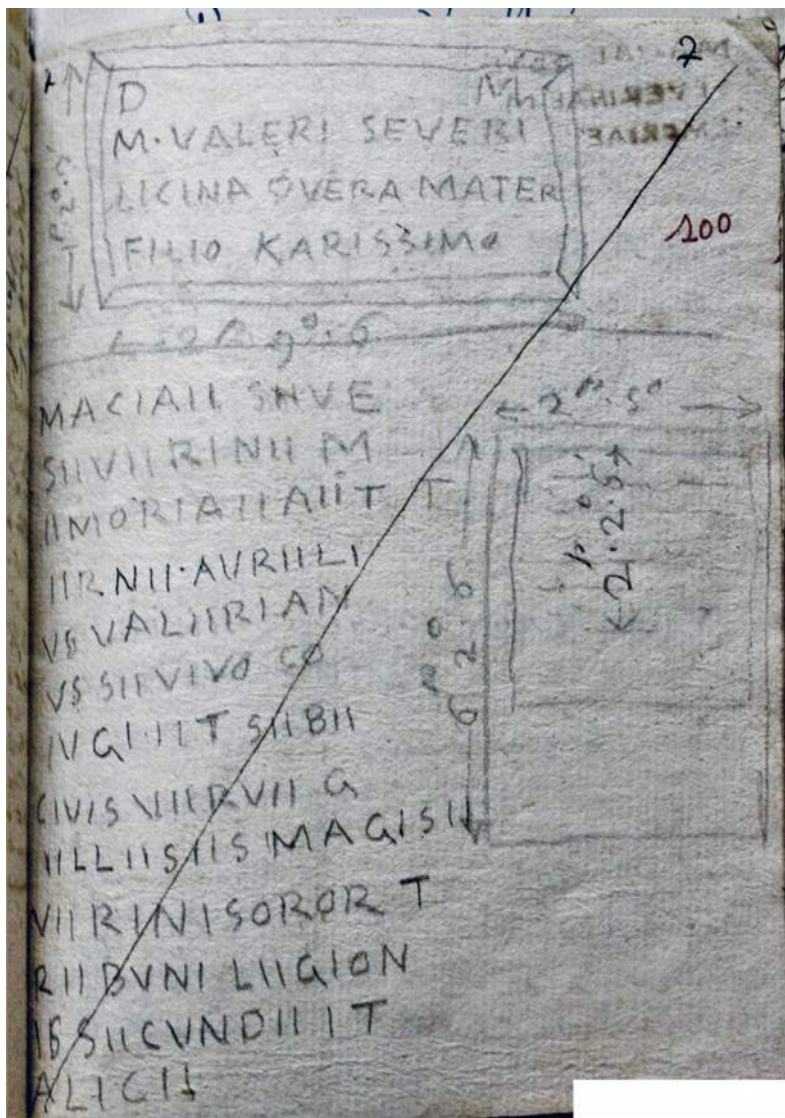 7
D M
M·VALERI SEVERI
LICINA OVERA MATER
FILIO KARISSIMO
100
MACIAII SIIVE
SIIVIIRINII M
IIMORIAIIAIIT T
IIRNII·AVRIILI
VS VALIIRIAN
VS SIIVIVO CO
IVGI·IIT SIIBII
CIVIS VIIRVII G
IILLIISIIS MAGISII
VIIRINISOROR T
RIIBVNI LIIGION
IS SIICVNDII IT
ALICII
2 P. 5°
2·2·5
6 P 2° 6